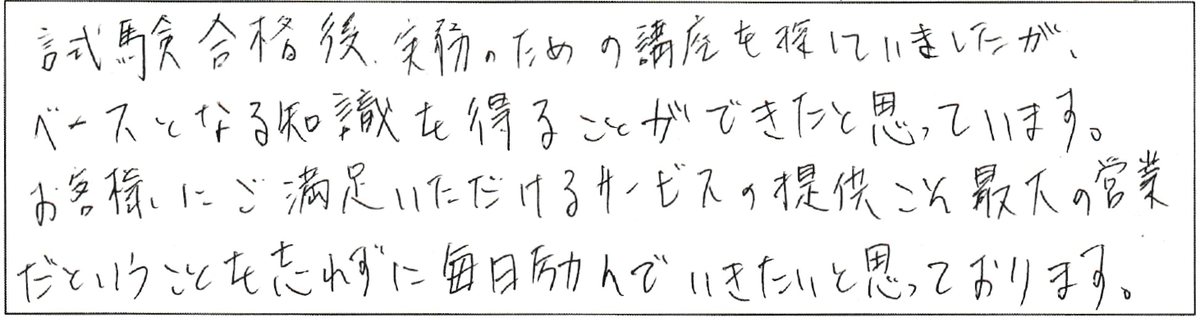 試験合格後、実務のための講座を探していましたが、
ベースとなる知識を得ることができたと思っています。
お客様にご満足いただけるサービスの提供こそ最大の営業
だということを忘れずに毎日励んでいきたいと思っております。